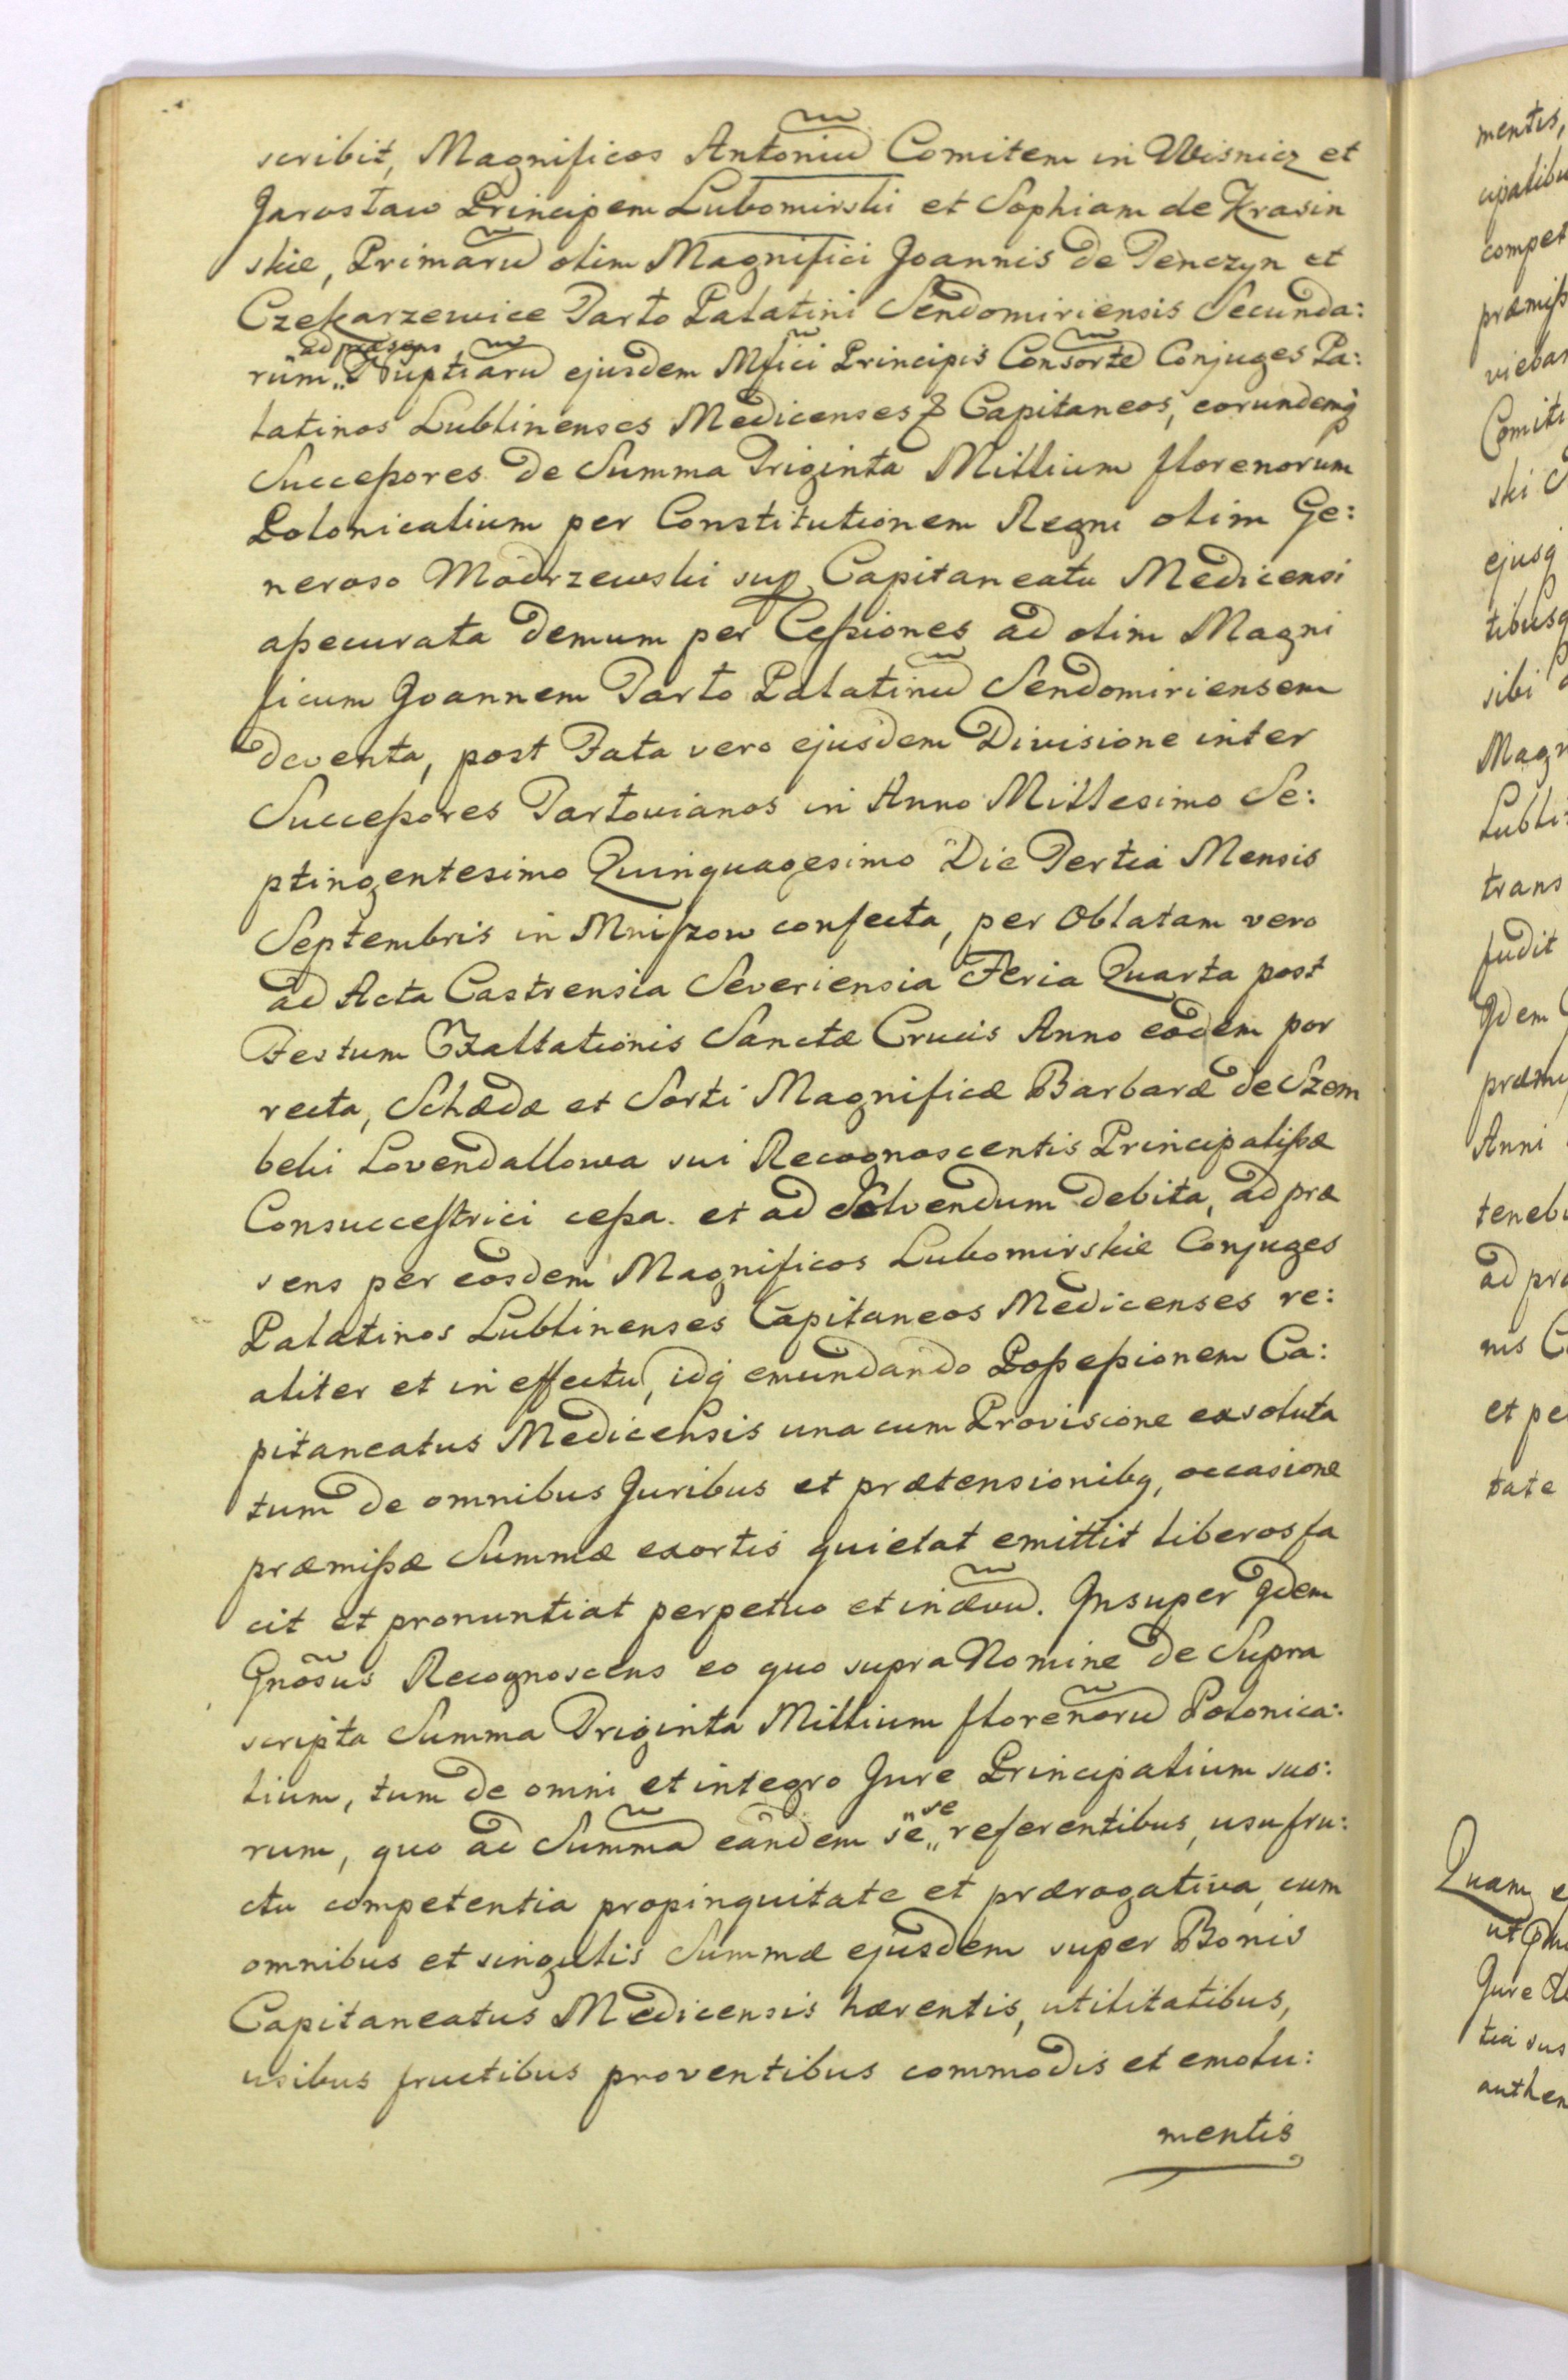 scribit, Magnificos Antoniũ Comitem in Wisnicz et
Jarosław Principem Lubomirski et Sophiam de Krasin
skie, Primarũ olim Magnifici Joannis de Tenczyn et
Czekarzewice Tarło Palatini Sendomiriensis Secunda:
ad præsens
rum „ Nuptiarũ ejusdem Mfĩci Principis Consortẽ Conjuges Pa:
latinos Lublinenses Medicenses & Capitaneos, eorundemq
Succeßores de Summa Triginta Millium florenorum
Polonicalium per Constitutionem Regni olim Ge:
neroso Modrzewski sup Capitaneatu Medicensi
aßecurata demum per Ceßiones ad olim Magni
ficum Joannem Tarło Palatinũ Sendomiriensem
deventa, post Fata vero ejusdem Divisione inter
Succeßores Tarłovianos in Anno Millesimo Se:
ptingentesimo Quinquagesimo Die Tertia Mensis
Septembris in Mniszow confecta, per Oblatam vero
ad Acta Castrensia Severiensia Feria Quarta post
Festum Exaltationis Sanctæ Crucis Anno eodem por
recta, Schædæ et Sorti Magnificæ Barbaræ de Szem
beki Lovendallowa sui Recognoscentis Principalißæ
Consuccestrici ceßa. et ad Solvendum debita, ad præ
sens per eosdem Magnificos Lubomirskie Conjuges
Palatinos Lublinenses Capitaneos Medicenses re:
aliter et in effectu, idq emundando Poßeßionem Ca:
pitaneatus Medicensis una cum Provisione exsoluta
tum de omnibus Juribus et prætensionibq, occasione
præmißæ Summæ exortis quietat emittit liberos fa
cit et pronuntiat perpetuo et in ævũ. Insuper Idem
Gnõsus Recognoscens eo quo supra Nomine de Supra
scripta Summa Triginta Millium florenorũ Polonica:
lium, tum de omni et integro Jure Principalium suo:
rum, quo ad Summã eandem se „ se referentibus, usufru:
ctu competentia propinquitate et prærogativa, cum
omnibus et singulis Summæ ejusdem super Bonis
Capitaneatus Medicensis hærentis, utilitatibus,
usibus fructibus proventibus commodis et emolu:
mentis
mentis,
compet
præmiß
Comit
ski
ejusq
tibusq
sibi
Magn
Lubli:
trans
fudit
Idem
præmi
Anni
teneb
ad præ
et pe
tate
Quam
Jure
authen